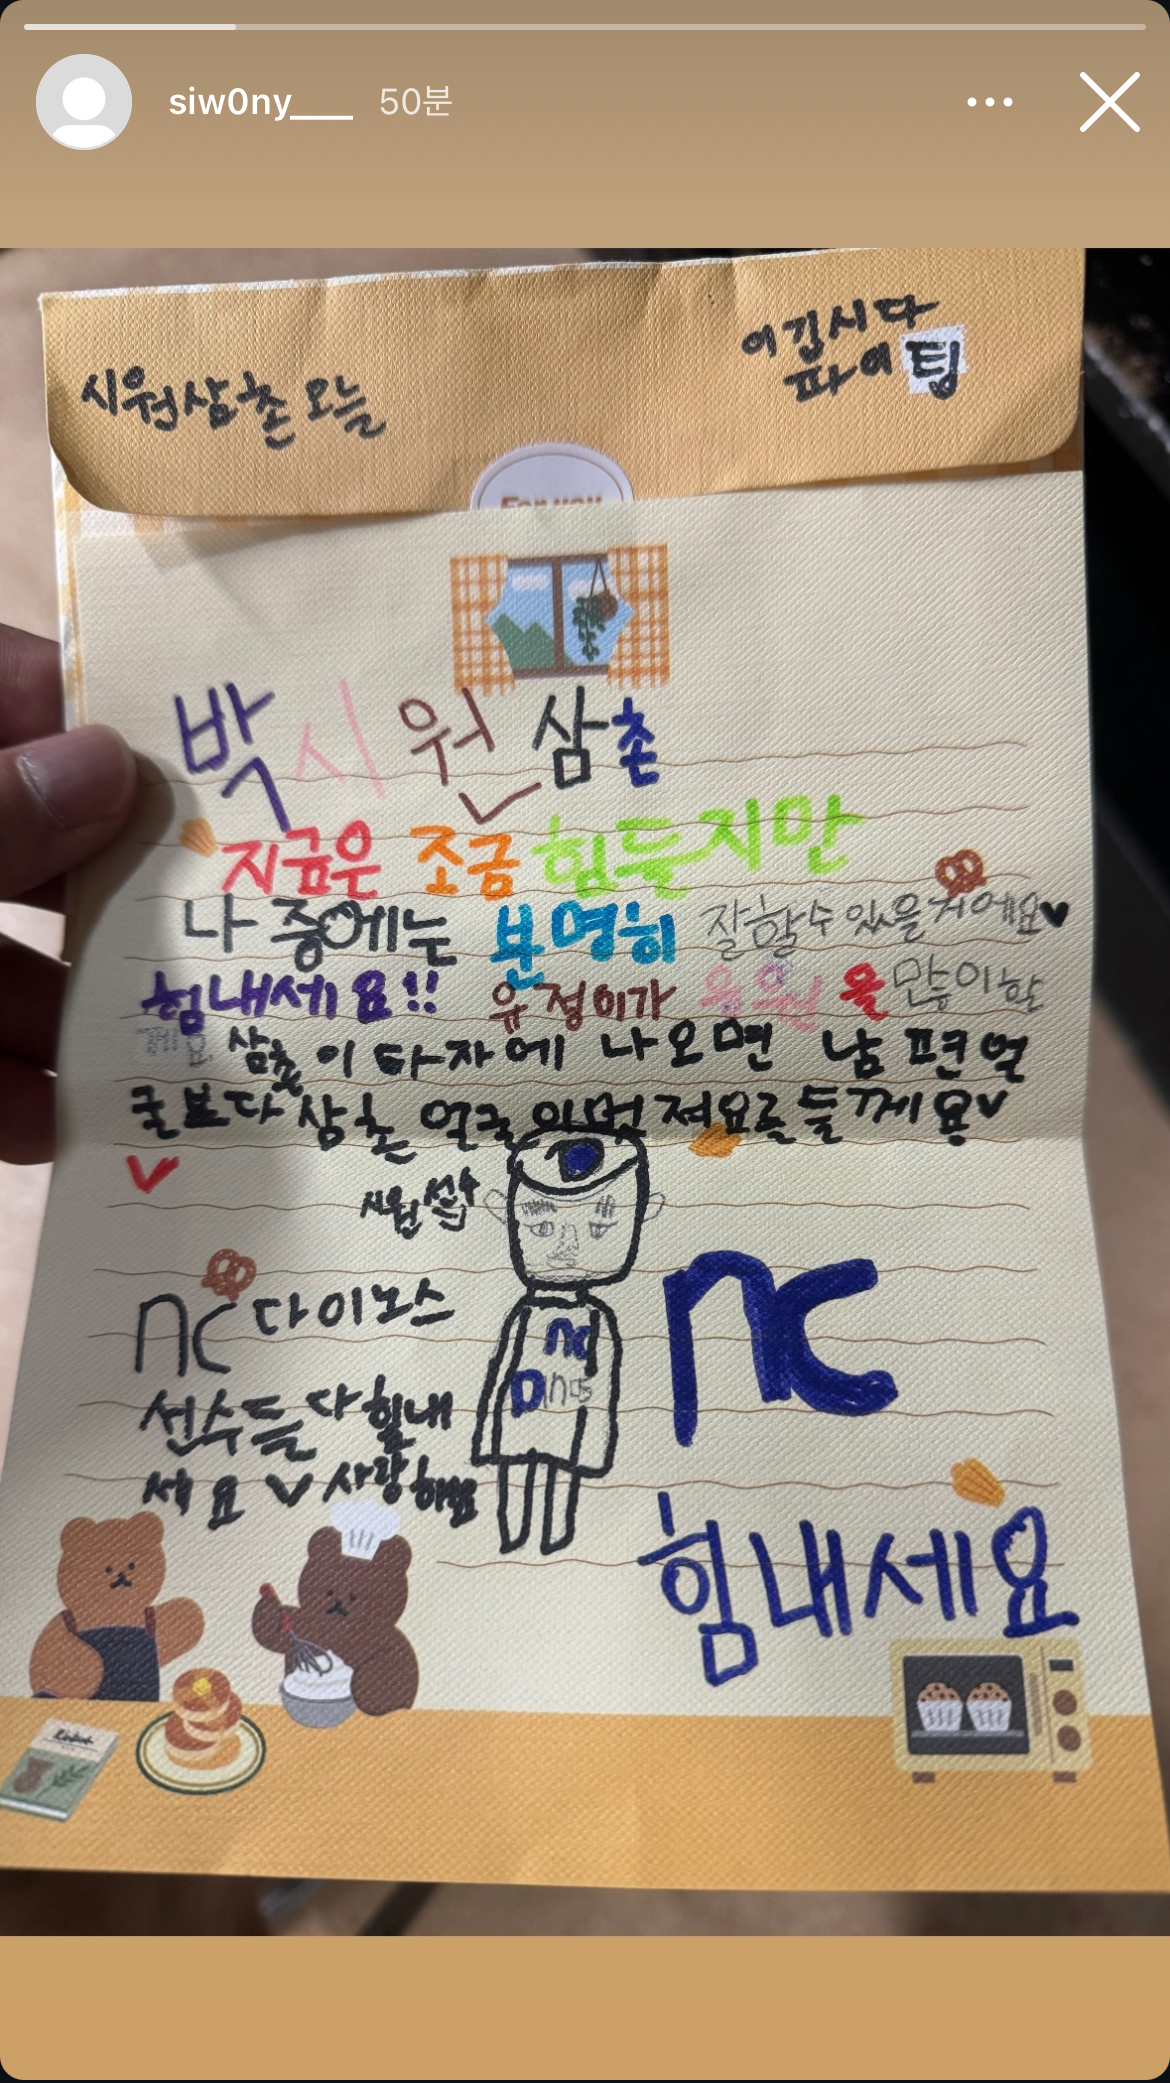 siw0ny___ 50분
시원삼촌 오늘
이깁시다
파이팅
For you
박시원 삼촌
지금은 조금 힘들지만
나중에는 분명히 잘할수 있을거에요♥
힘내세요!! 유정이가 응원을 많이할
께요 삼촌이 타자에 나오면 남편얼
굴보다 삼촌 얼굴 의번 저요로 들께요
시원선수
nc 다이노스
선수들 다 힘내
세요 사랑해요
nc
Dinos
nc
힘내세요